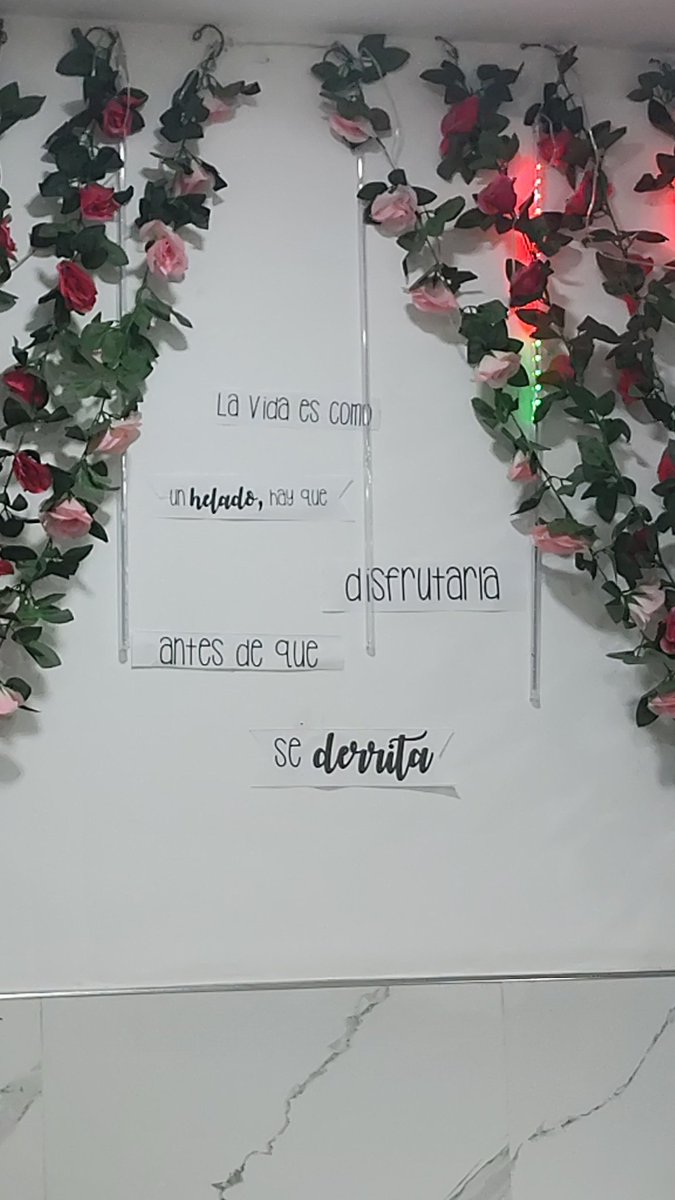 La vida es como
un helado, hay que
disfrutarla
antes de que
se derrita